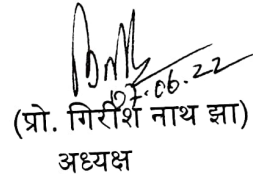 07.06.22
(प्रो. गिरीश नाथ झा)
अध्यक्ष